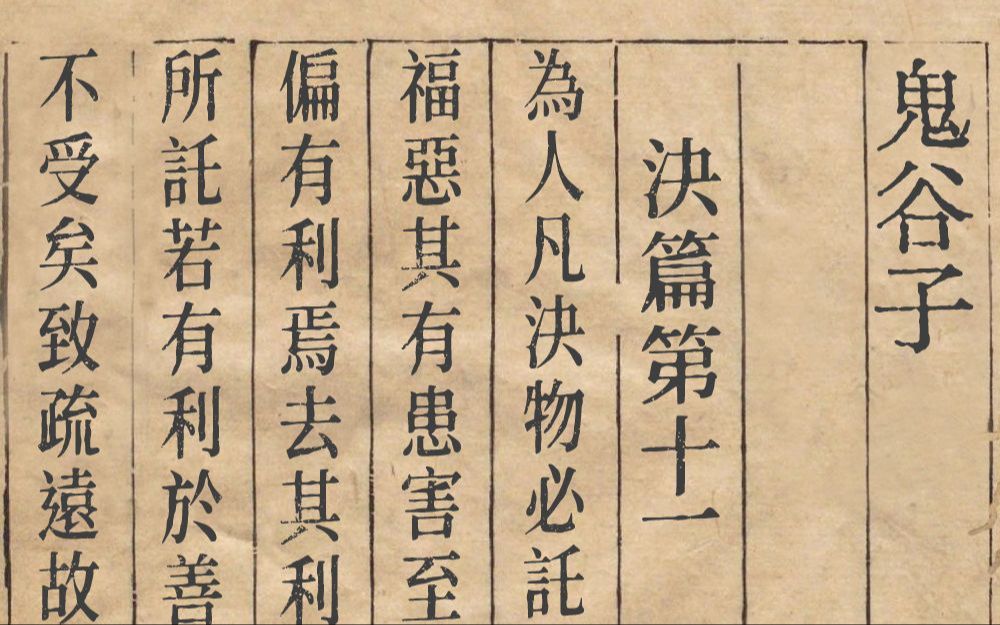 鬼谷子
決篇第十一
為人凡決物必託
福惡其有患害至
偏有利焉去其利
所託若有利於善
不受矣致疏遠故